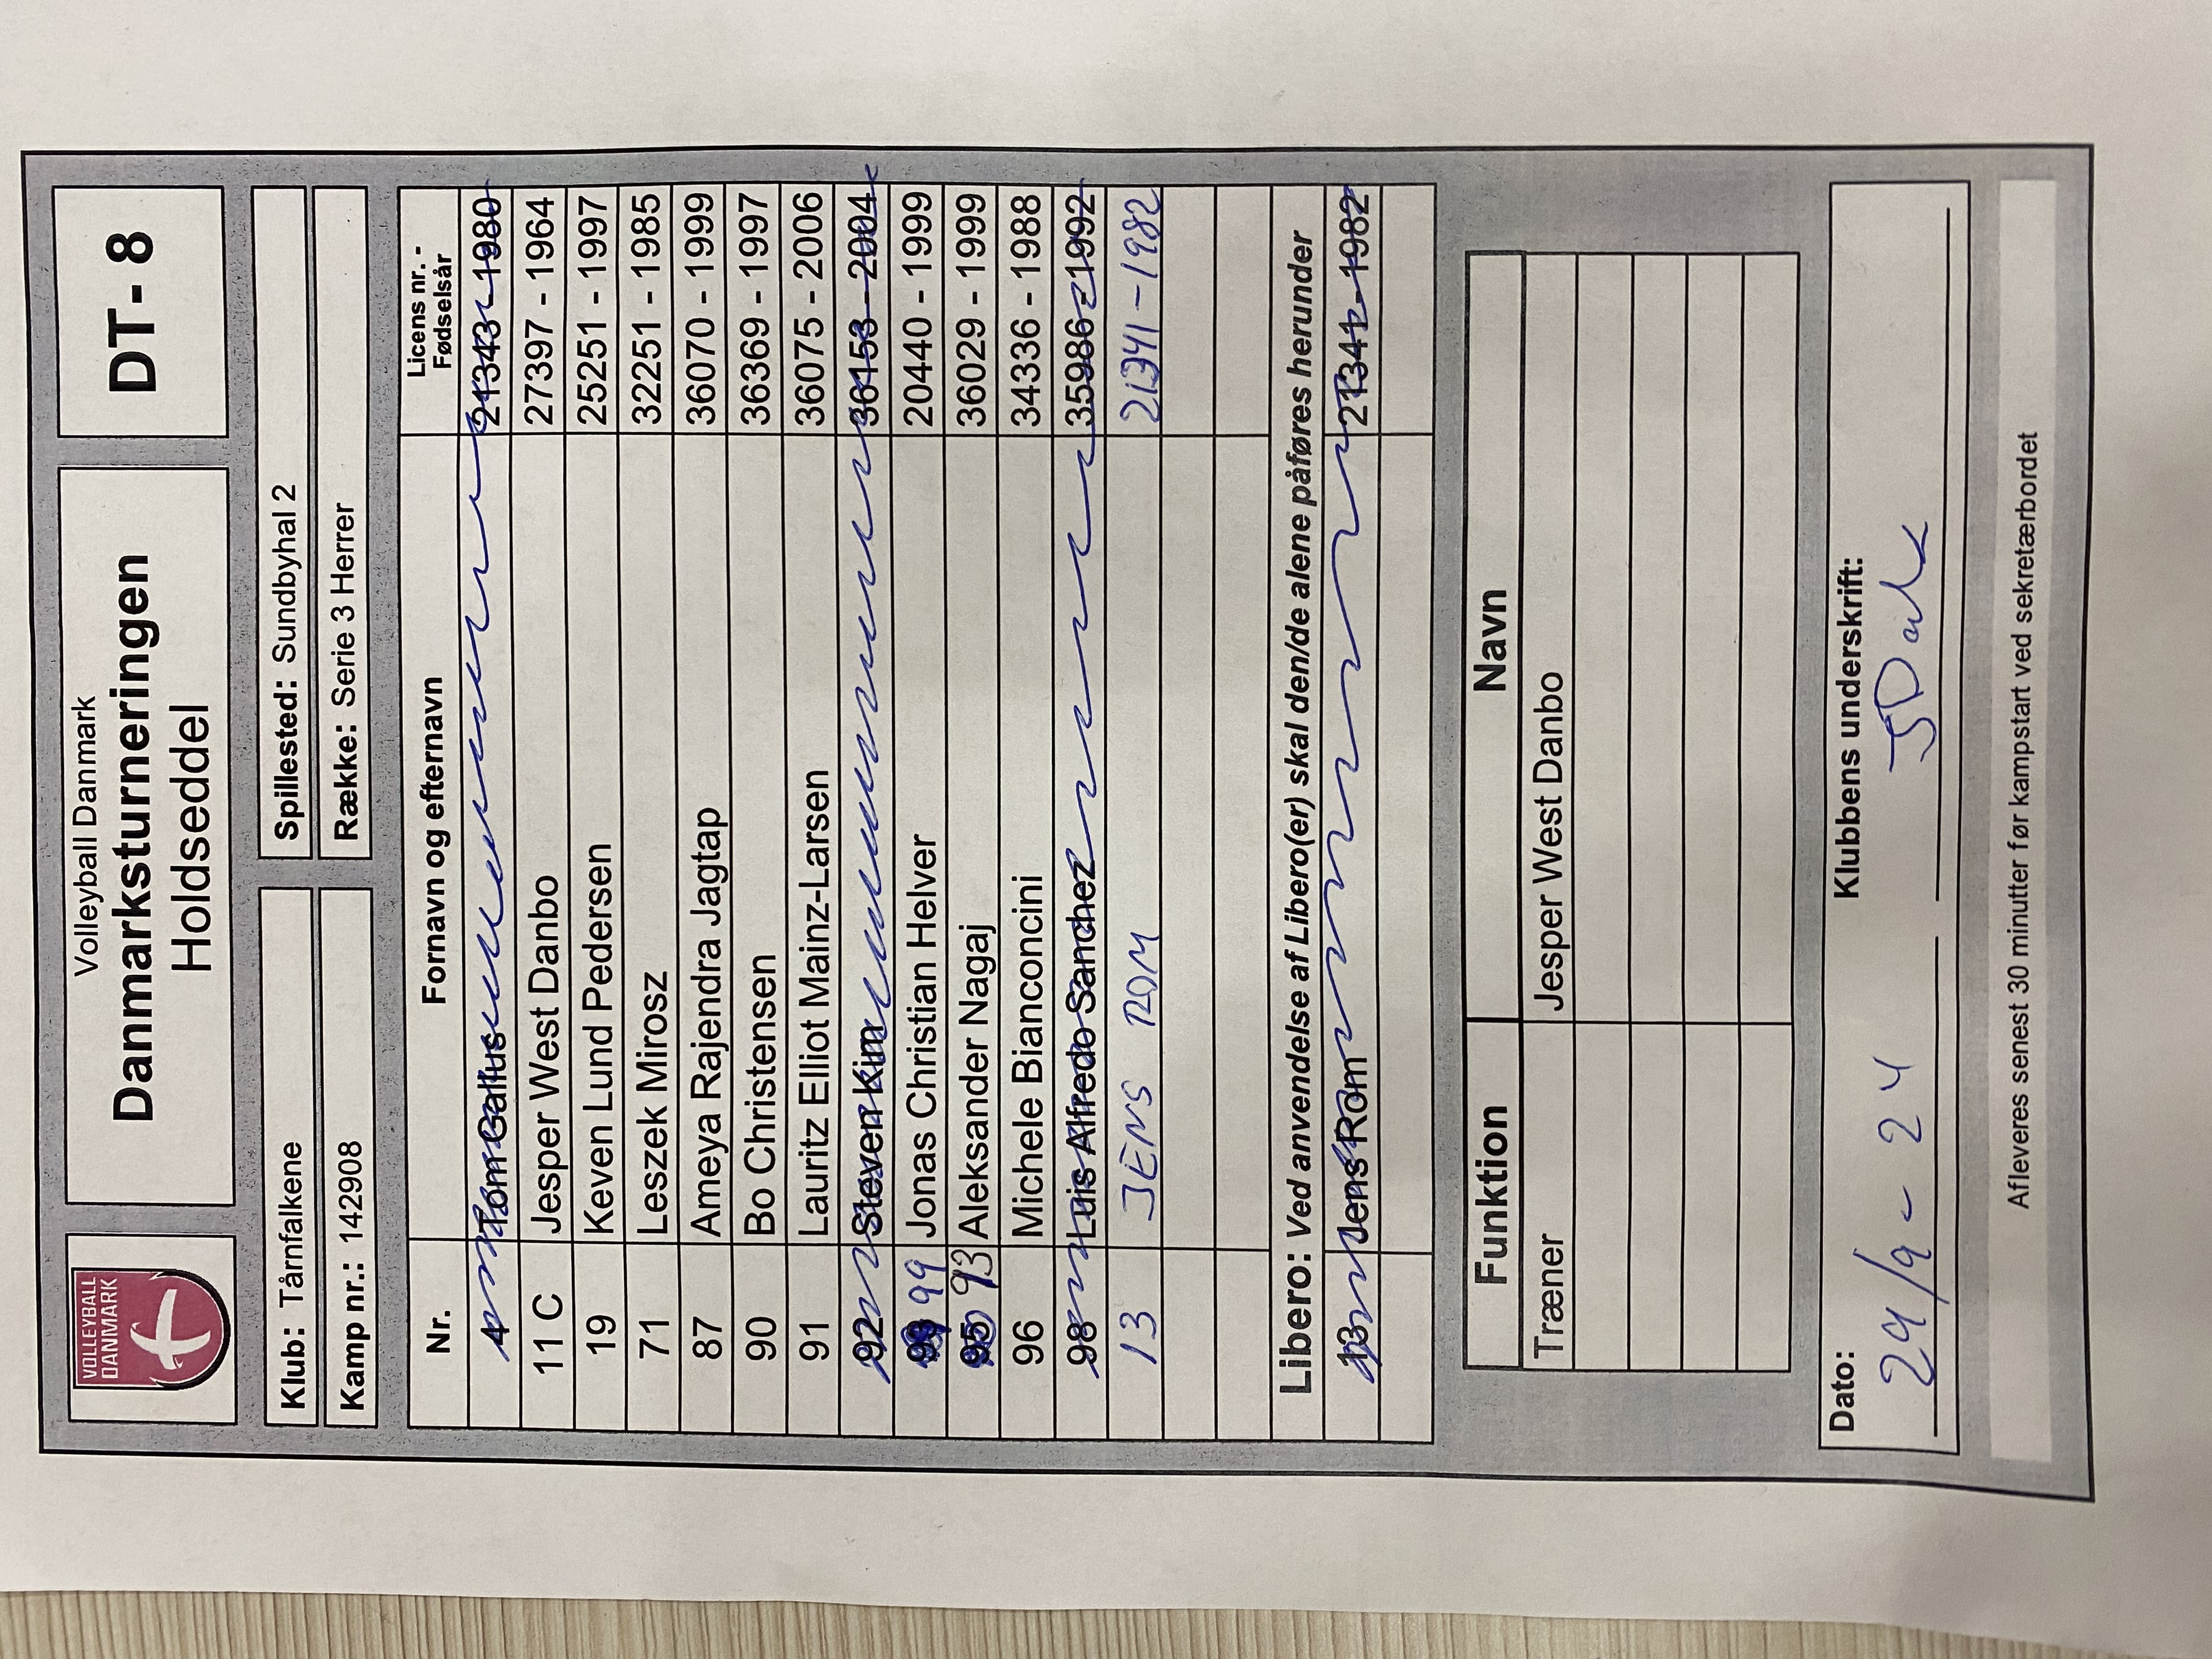 VOLLEYBALL
DANMARK
Volleyball Danmark
Danmarksturneringen
Holdseddel
DT - 8
Klub: Tårnfalkene
Spillested: Sundbyhal 2
Kamp nr.: 142908
Række: Serie 3 Herrer
Nr. Fornavn og efternavn Licens nr. - Fødselsår
4 Tom Gallus 21343 - 1980
11 C Jesper West Danbo 27397 - 1964
19 Keven Lund Pedersen 25251 - 1997
71 Leszek Mirosz 32251 - 1985
87 Ameya Rajendra Jagtap 36070 - 1999
90 Bo Christensen 36369 - 1997
91 Lauritz Elliot Mainz-Larsen 36075 - 2006
92 Steven Kim 36153 - 2004
99 Jonas Christian Helver 20440 - 1999
95 93 Aleksander Nagaj 36029 - 1999
96 Michele Bianconcini 34336 - 1988
98 Luis Alfredo Sanchez 35986 - 1992
13 JENS ROM 21341 - 1982
Libero: Ved anvendelse af Libero(er) skal den/de alene påføres herunder
13 Jens Rom 21341 - 1982
Funktion Navn
Træner Jesper West Danbo
Dato: Klubbens underskrift:
29/9 - 24
Afleveres senest 30 minutter før kampstart ved sekretærbordet